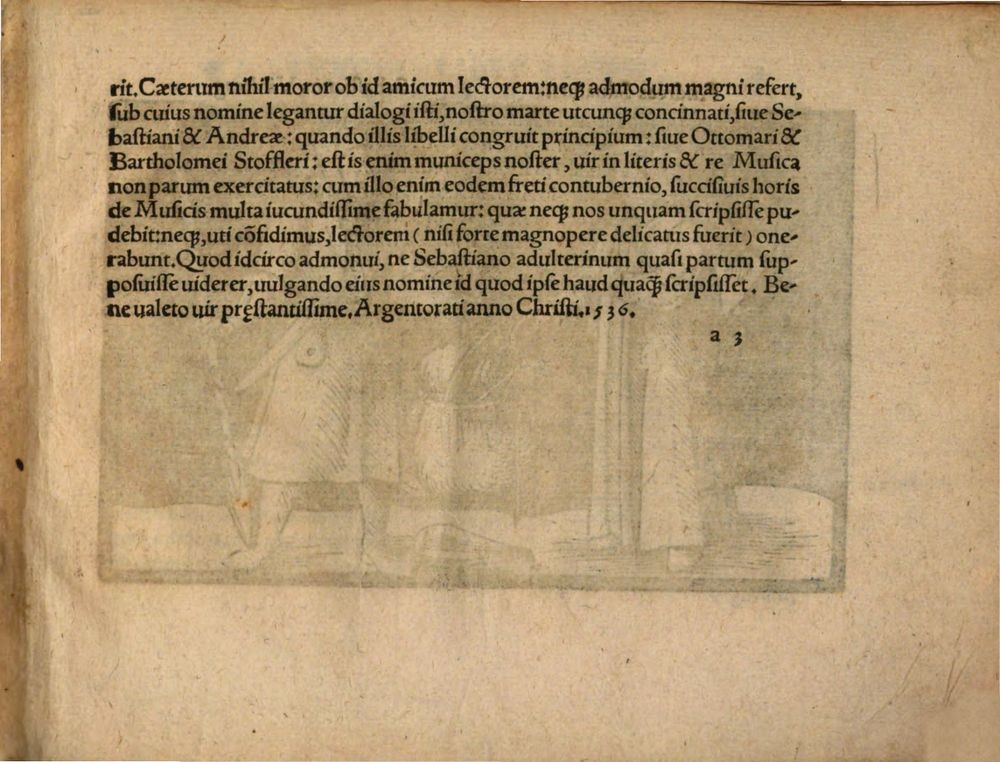 rit. Cæterum nihil moror ob id amicum lectorem: neqꝫ admodum magni refert,
ſub cuius nomine legantur dialogi iſti, noſtro marte utcunqꝫ concinnati, ſiue Se-
baſtiani & Andreæ: quando illis libelli congruit principium: ſiue Ottomari &
Bartholomei Stoffleri: eſt is enim municeps noſter, uir in literis & re Muſica
non parum exercitatus: cum illo enim eodem freti contubernio, ſucciſiuis horis
de Muſicis multa iucundiſſime fabulamur: quæ neqꝫ nos unquam ſcripſiſſe pu-
debit: neqꝫ, uti cõfidimus, lectorem (niſi forte magnopere delicatus fuerit) one-
rabunt. Quod idcirco admonui, ne Sebaſtiano adulterinum quaſi partum ſup-
poſuiſſe uiderer, uulgando eius nomine id quod ipſe haud quaqꝫ̃ ſcripſiſſet. Be-
ne ualeto uir pręſtantiſſime. Argentorati anno Chriſti. 1536.
a 3